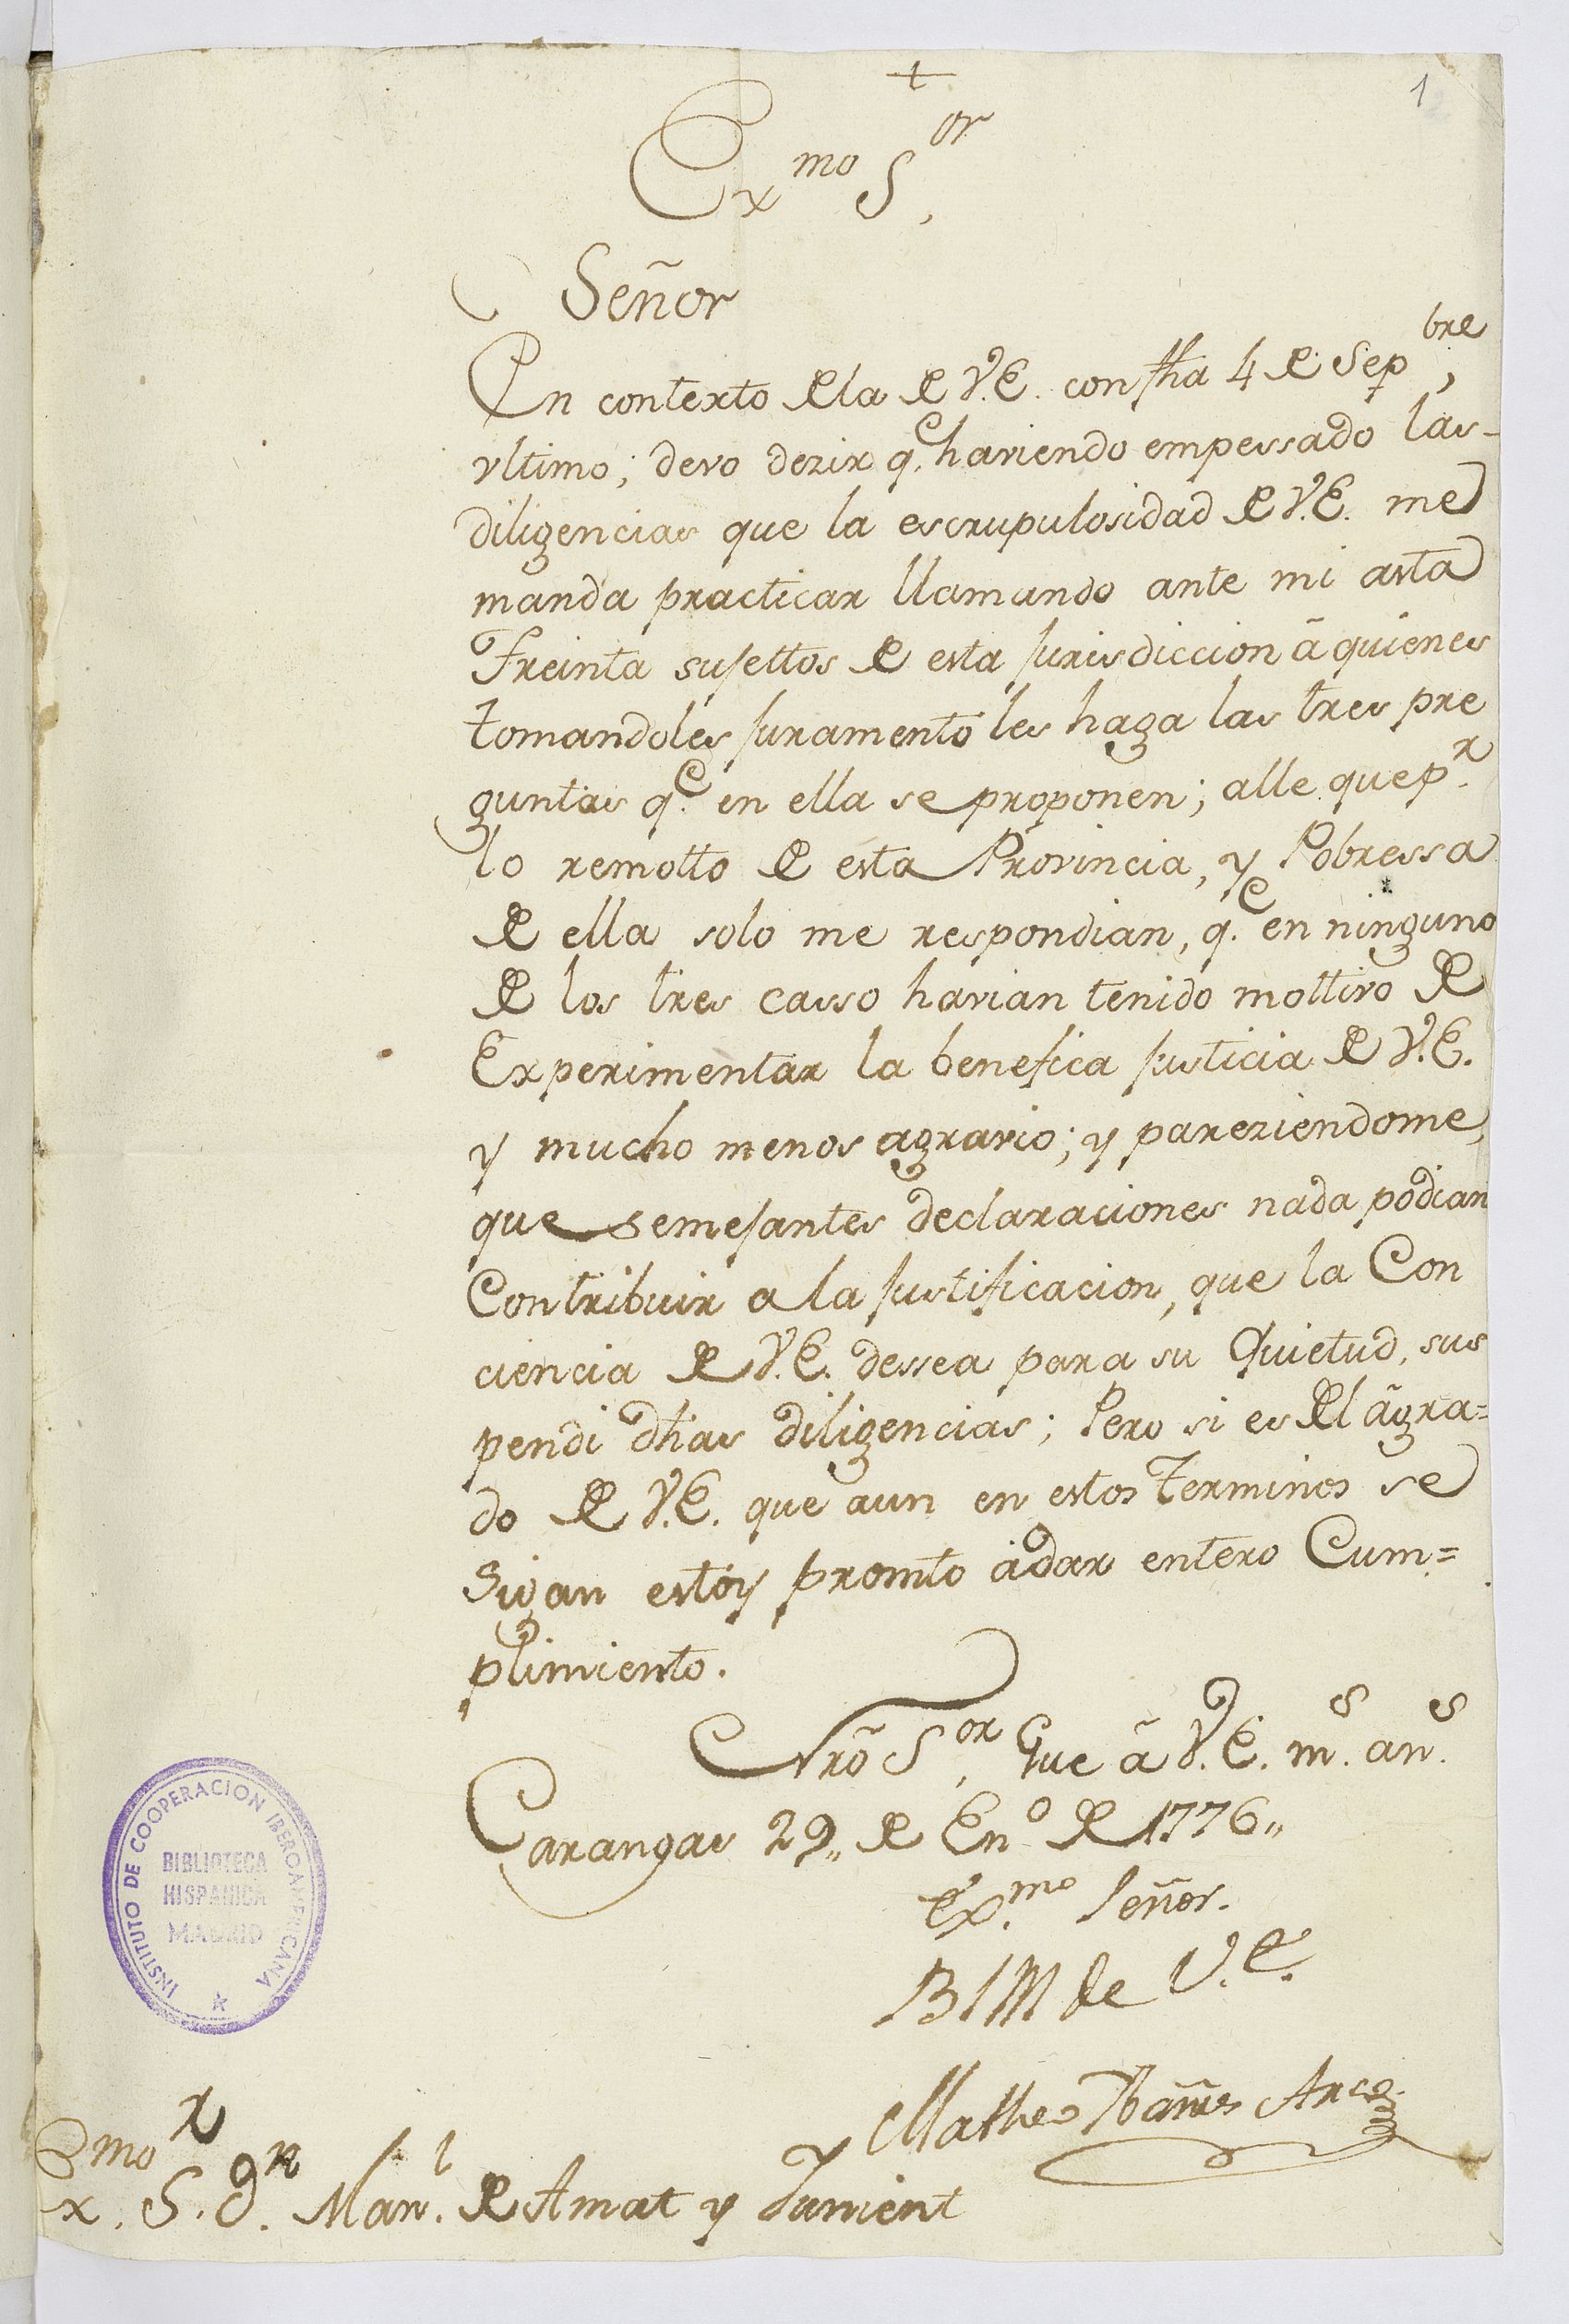 +
1
Exmo Sor,
Señor
En contexto de la de V.E. con fha 4 de Sepbre,
vltimo; devo dezir q.e haviendo empessado las
diligencias que la escrupulosidad de V.E. me
manda practicar llamando ante mi asta
Treinta sujettos de esta jurisdiccion â quienes
tomandoles juramento les haga las tres pre
guntas q.e en ella se proponen; alle que p.r
lo remotto de esta Provincia, y Pobressa
de ella solo me respondian, q.e en ninguno
de los tres casso havian tenido mottivo de
Experimentar la benefica justicia de V.E.
y mucho menos agravio; y pareziendome,
que semejantes declaraciones nada podian
Contribuir a la justificacion, que la Con
ciencia de V.E. dessea para su Quietud, sus
pendi dhas diligencias; Pero si es del âgra=
do de V.E. que aun en estos terminos se
Sigan estoy promto â dar entero Cum=
plimiento.
Nrõ Sor, Gue â V.E. m.s an.s
Carangas 29,, de En.o de 1776,,
Ex.mo Señor.
BlM de V.E.
Matheo Ibañes Arco
Exmo. S.r d.n Man.l de Amat y Junient
INSTITUTO DE COOPERACION IBEROAMERICANA
BIBLIOTECA
HISPANICA
MADRID